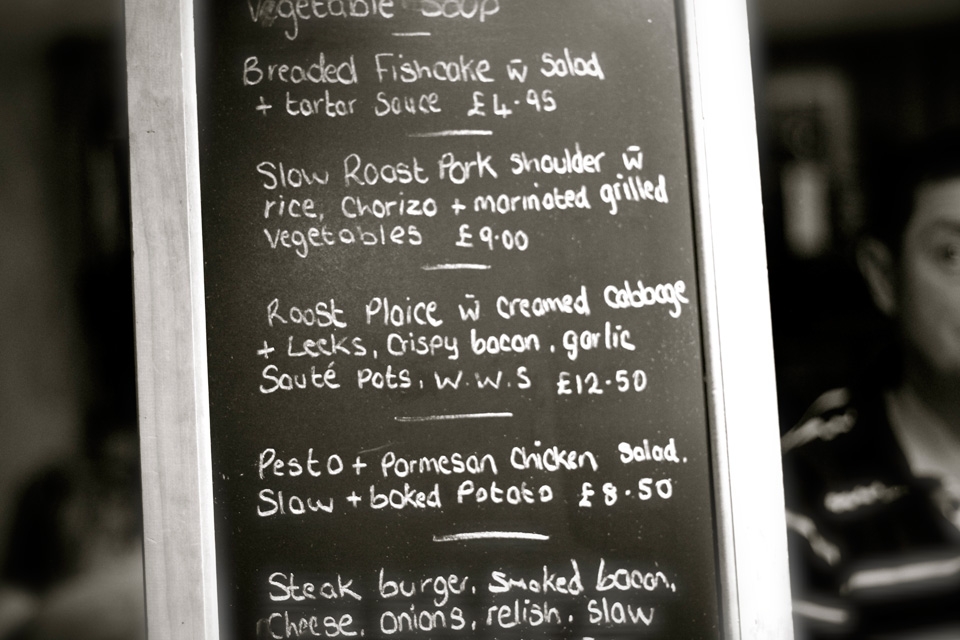 Vegetable Soup
Breaded Fishcake w̄ Salad
+ tartar Sauce £4.95
Slow Roast Pork shoulder w̄
rice, chorizo + marinated grilled
vegetables £9.00
Roast Plaice w̄ creamed cabbage
+ Leeks, Crispy bacon, garlic
Sauté Pots, W.W.S £12.50
Pesto + Parmesan Chicken Salad.
Slaw + baked Potato £8.50
Steak burger, Smoked bacon,
Cheese, onions, relish, slaw